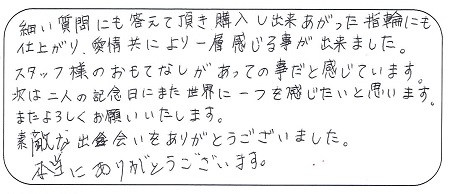 細い質問にも答えて頂き購入し出来あがった指輪にも
仕上がり、愛情共により一層感じる事が出来ました。
スタッフ様のおもてなしがあっての事だと感じています。
次は二人の記念日にまた世界に一つを感じたいと思います。
またよろしくお願いいたします。
素敵な出会いをありがとうございました。
本当にありがとうございます。